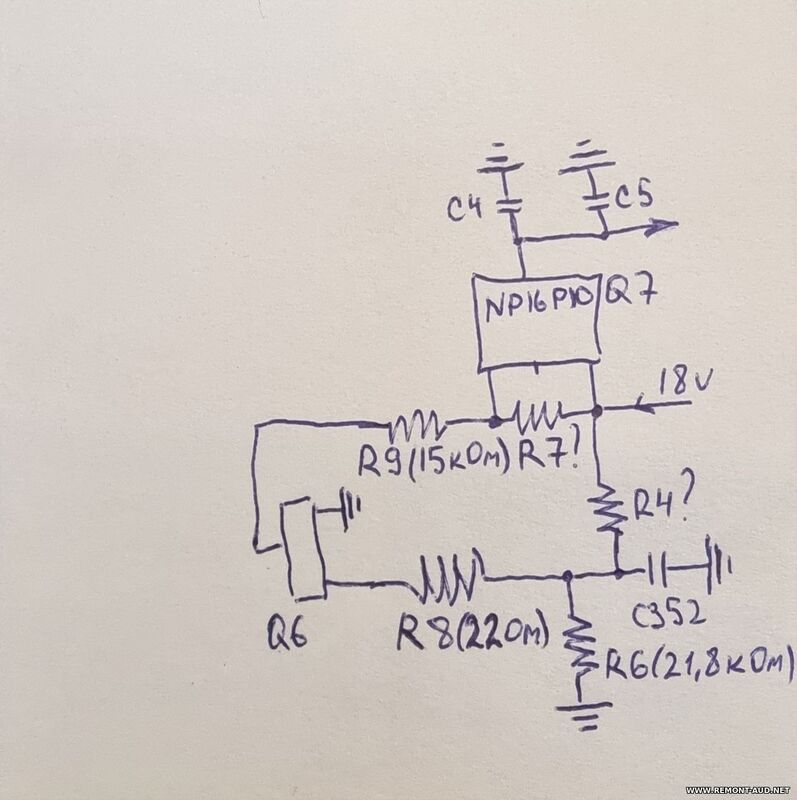 C4
C5
NP16P10
Q7
18V
R9(15кОм)
R7?
R4?
Q6
R8(220м)
C352
R6(21,8кОм)
WWW.REMONT-AUD.NET